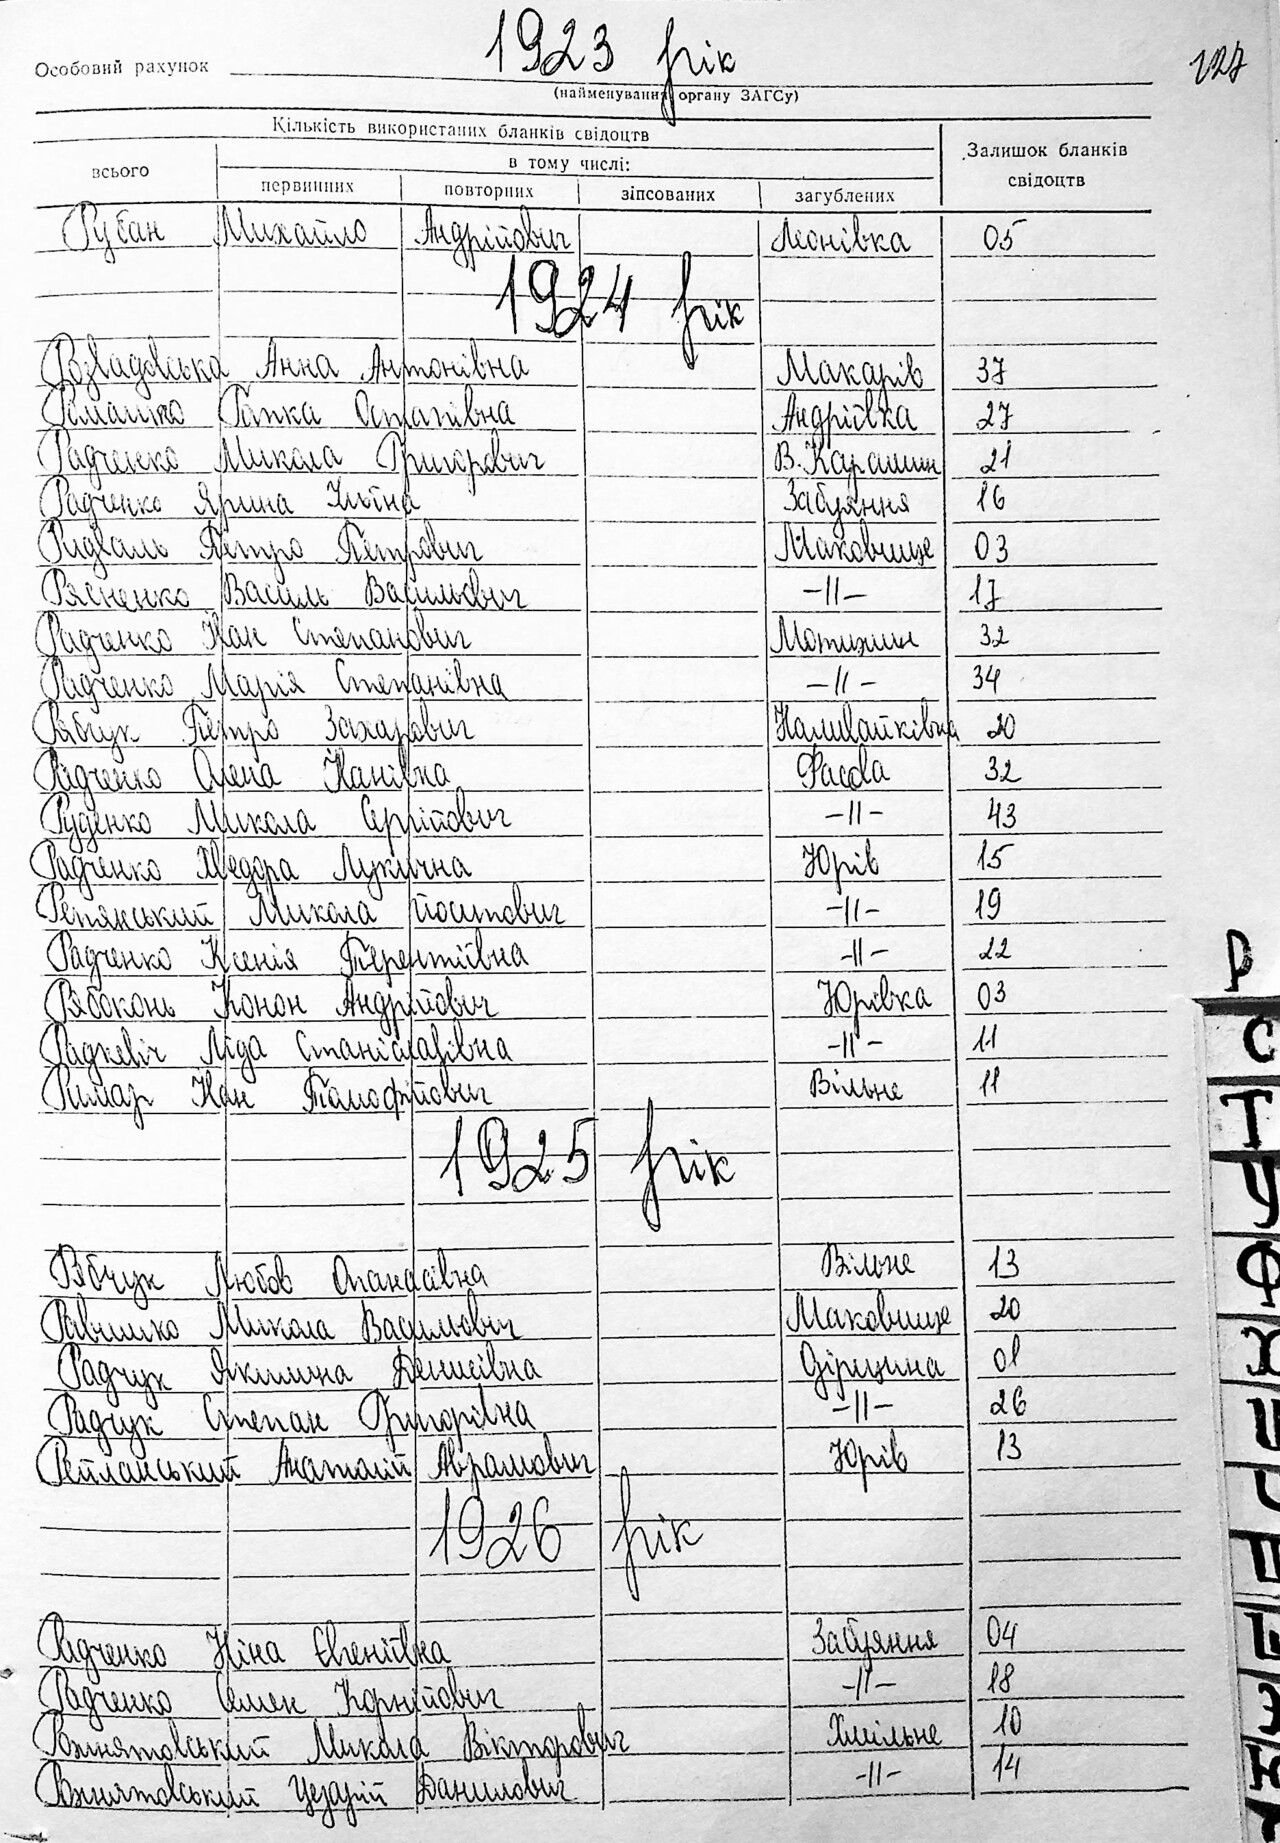 1923 рік
127
Особовий рахунок
(найменування органу ЗАГСу)
Кількість використаних бланків свідоцтв
Залишок бланків свідоцтв
всього
в тому числі:
первинних повторних зіпсованих загублених
Рубан Михайло Андрійович Леонівка 05
1924 рік
Розвадовська Анна Антонівна Макарів 37
Ромашко Гапка Остапівна Андріївка 27
Радченко Микола Григорович В. Карашин 21
Радченко Ярина Ільїна Забуяння 16
Ридваль Петро Петрович Маковище 03
Рясненко Василь Васильович -//- 17
Радченко Іван Степанович Мотижин 32
Радченко Марія Степанівна -//- 34
Рябчук Петро Захарович Наливайківка 20
Радченко Олена Іванівна Фасова 32
Руденко Микола Сергійович -//- 43
Радченко Хведора Лукична Юрів 15
Микола Йосипович -//- 19
Радченко Ксенія Терентіївна -//- 22
Рябоконь Конон Андрійович Юрівка 03
Радкевіч Ліда Станіславівна -//- 11
Римар Іван Тимофійович Вільне 11
1925 рік
Рябчук Любов Опанасівна Вільне 13
Равишко Микола Васильович Маковище 20
Радчук Якилина Денисівна 01
Радчук Степан Григорівна -//- 26
Анатолій Аврамович Юрів 13
1926 рік
Радченко Ніна Євгеніївна Забуяння 04
Радченко Семен Корнійович -//- 18
Микола Вікторович Хмільне 10
Цезарій Данилович -//- 14
Р
С
Т
У
Ф
Х